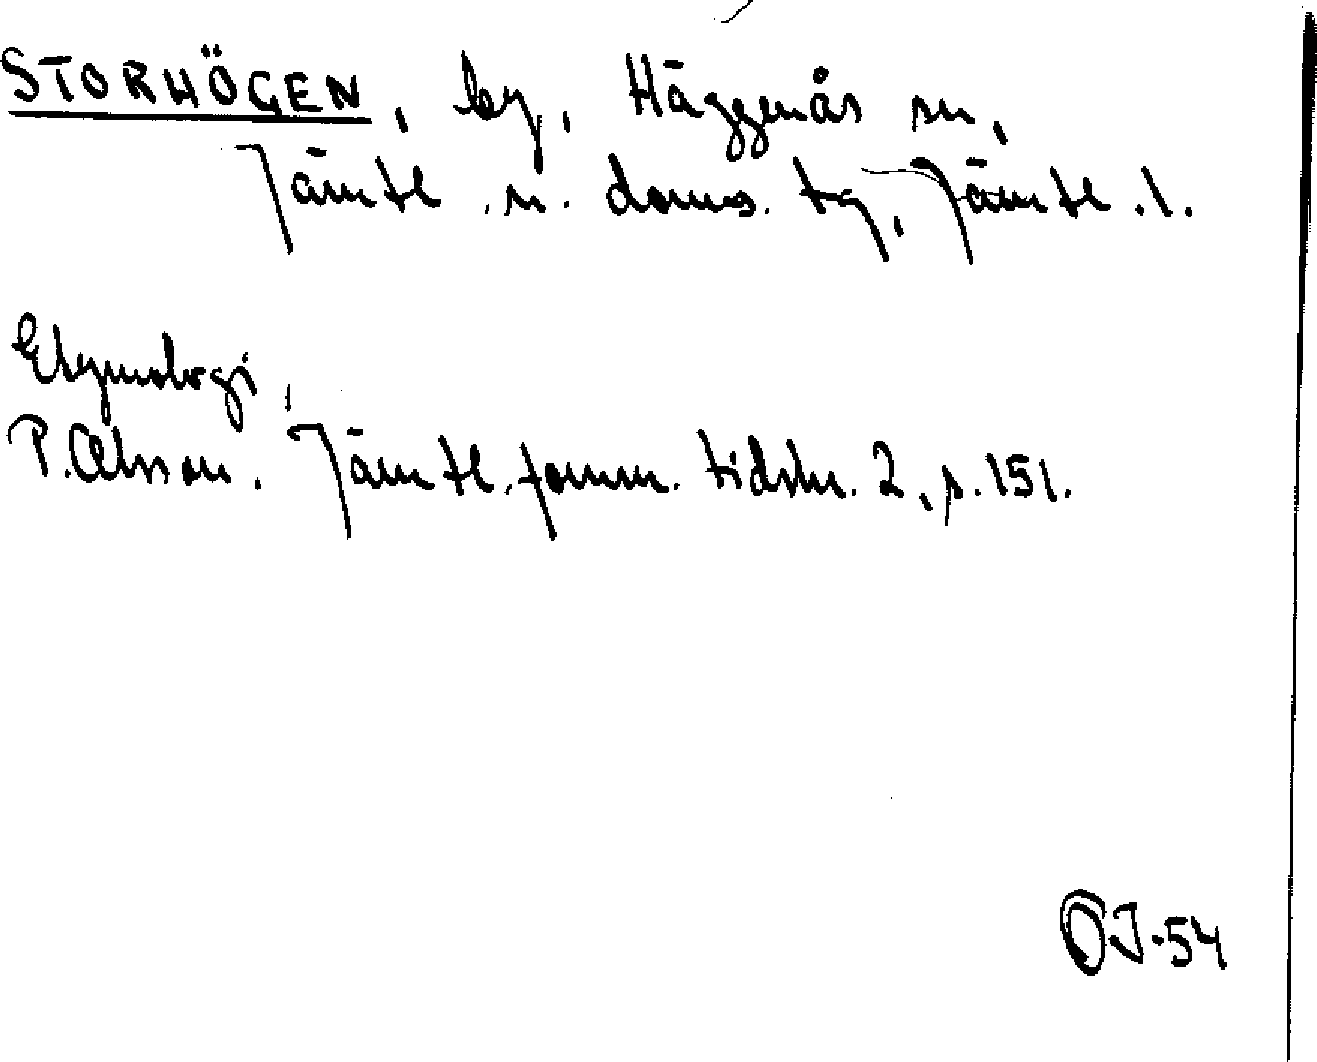 STORHÖGEN, by, Häggenås sn,
Jämtl. n. doms. tg, Jämtl. l.
Etymologi,
P. Olsson. Jämtl. fornm. tidskr. 2, s. 151.
OJ-54